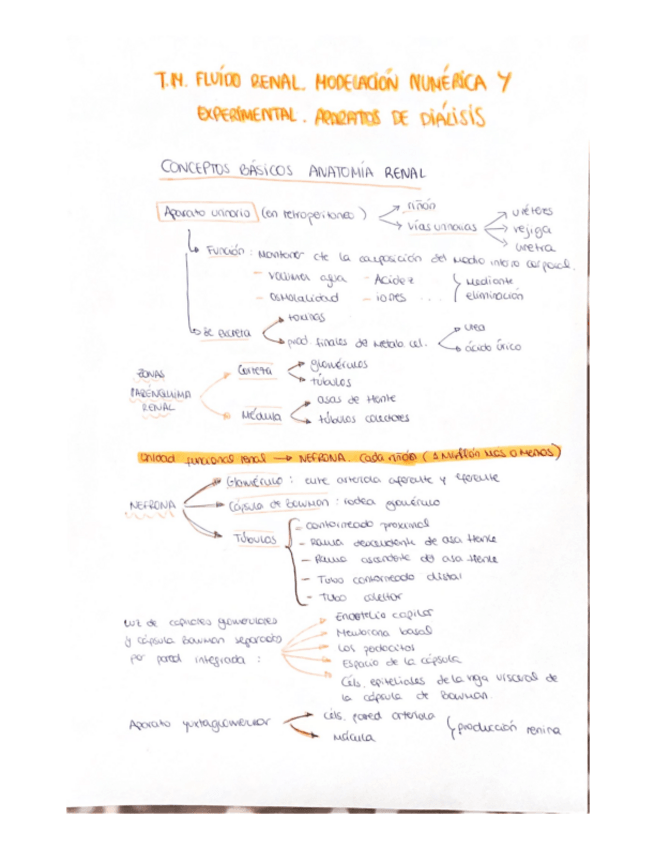 T.N. FLUÍDO RENAL. MODELACIÓN NUMÉRICA Y
EXPERIMENTAL. APARATOS DE DIÁLISIS
CONCEPTOS BÁSICOS ANATOMÍA RENAL
Aparato urinario (en retroperitoneo) riñón
vías urinarias
uréteres
vejiga
uretra
Función: Mantener cte la composición del medio interno corporal.
- volumen agua - Acidez Mediante
- osmolalidad - iones ... eliminación
Se excreta toxinas
prod. finales de metabo cel. urea
ácido úrico
ZONAS PARÉNQUIMA RENAL
Corteza glomérulos
túbulos
Médula asas de Henle
túbulos colectores
Unidad funcional renal → NEFRONA. Cada riñón (1 millón más o menos)
NEFRONA
Glomérulo: entre arteriola aferente y eferente
Cápsula de Bowman: rodea glomérulo
Túbulos
- contorneado proximal
- Rama descendente de asa Henle
- Rama ascendente del asa Henle
- Tubo contorneado distal
- Tubo colector
Luz de capilares glomerulares
y cápsula Bowman separados
por pared integrada:
Endotelio capilar
Membrana basal
Los podocitos
Espacio de la cápsula
Céls. epiteliales de la hoja visceral de
la cápsula de Bowman.
Aparato yuxtaglomerular
céls. pared arteriola
mácula
producción renina